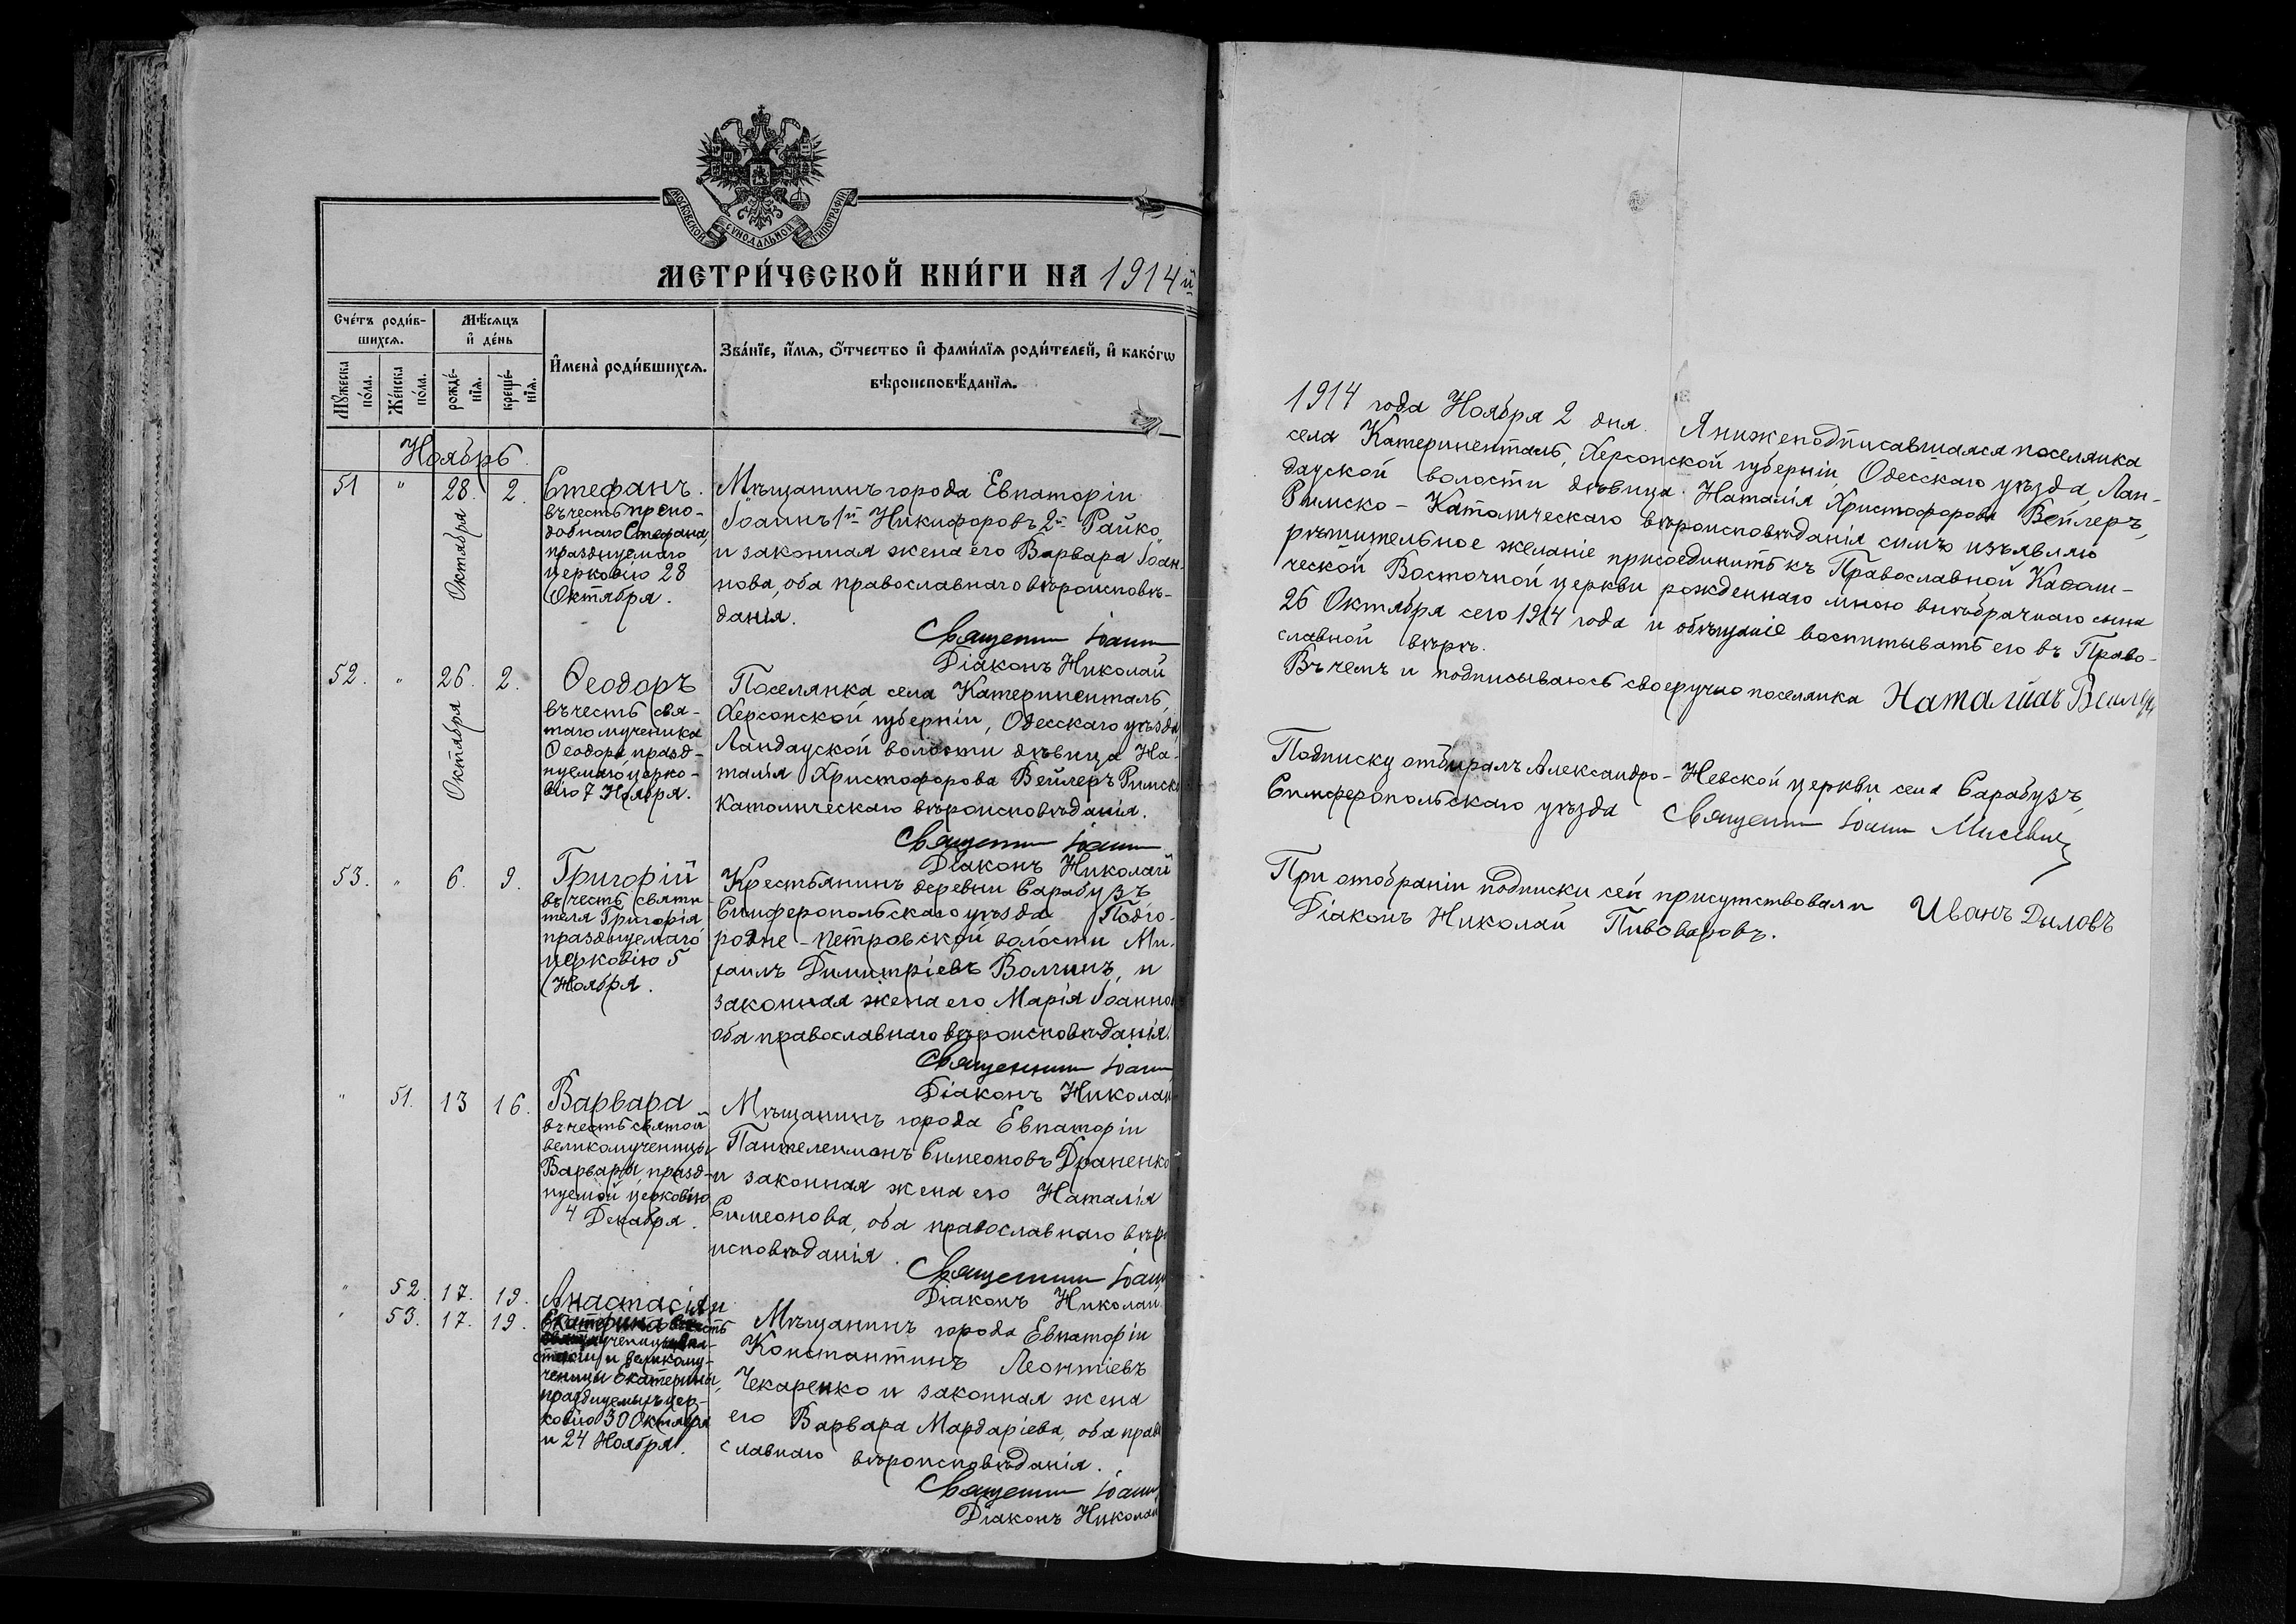 МОСКОВСКОЙ СѴНОДАЛЬНОЙ ТИПОГРАФІИ
МЕТРИ́ЧЕСКОЙ КНИ́ГИ НА 1914й
Сче́тъ роди́в-
шихсѧ.
Мꙋ́жеска по́ла.
Же́нска по́ла.
Мѣ́сѧцъ
и҆ де́нь
рожде́-
нїѧ.
креще́-
нїѧ.
И҆мена̀ роди́вшихсѧ.
Зва́нїе, и҆́мѧ, ѻ҆́тчество и҆ фами́лїѧ роди́телей, и҆ како́гѡ
вѣроисповѣ́данїѧ.
Ноябрь.
51 " 28. 2.
Октября
Стефанъ.
въ честь препо-
добнаго Стефана,
празднуемаго
церковію 28
Октября.
Мѣщанинъ города Евпаторіи
Іоаннъ 1й Никифоровъ 2й Райко,
и законная жена его Варвара Іоан-
нова, оба православнаго вѣроисповѣ-
данія.
Священник Іоанн
Діаконъ Николай
52. " 26. 2.
Октября
Ѳеодоръ
въ честь свя-
таго мученика
Ѳеодора, празд-
нуемаго церко-
вію 7 Ноября.
Поселянка села Катериненталь,
Херсонской губерніи, Одесскаго уѣзда,
Ландауской волости дѣвица На-
талія Христофорова Вейлеръ Римско
Католическаго вѣроисповѣданія.
Священник Іоанн
Діаконъ Николай
53. " 6. 9.
Григорій
въ честь святи
теля Григорія
празднуемаго
церковію 5
Ноября.
Крестьянинъ деревни Сарабузъ
Симферопольскаго уѣзда Подго-
родне-Петровской волости Ми-
хаилъ Димитріевъ Волчинъ, и
законная жена его Марія Іоаннов
оба православнаго вѣроисповѣданія.
Священник Іоанн
Діаконъ Николай
" 51. 13 16.
Варвара
въ честь святой
великомученицы
Варвары, празд-
нуемой церковію
4 Декабря.
Мѣщанинъ города Евпаторіи
Пантелеимонъ Симеоновъ Драненко
и законная жена его Наталія
Симеонова, оба православнаго вѣро
исповѣданія.
Священник Іоанн
Діаконъ Николай
" 52. 17. 19.
" 53. 17. 19.
Анастасія и
Екатерина въ честь
мученицы Ана-
стасіи и великому-
ченицы Екатерины,
празднуемыхъ цер-
ковію 30 Октября
и 24 Ноября.
Мѣщанинъ города Евпаторіи
Константинъ Леонтіевъ
Чекаренко и законная жена
его Варвара Мардаріева, оба право
славнаго вѣроисповѣданія.
Священник Іоанн
Діаконъ Николай
1914 года Ноября 2 дня. Я нижеподписавшаяся поселянка
села Катериненталь, Херсонской губерніи, Одесскаго уѣзда, Лан-
дауской волости дѣвица Наталія Христофорова Вейлеръ,
Римско-Католическаго вѣроисповѣданія симъ изъявляю
рѣшительное желаніе присоединить къ Православной Каѳоли-
ческой Восточной церкви рожденнаго мною внѣбрачнаго сына
26 Октября сего 1914 года и обѣщаніе воспитывать его въ Право-
славной вѣрѣ.
Въ чемъ и подписываюсь своеручно поселянка Наталия Вейлер
Подписку отбиралъ Александро-Невской церкви села Сарабузъ,
Симферопольскаго уѣзда Священник Іоанн Мисевич
При отобраніи подписки сей присутствовали Иванъ Дыловъ
Діаконъ Николай Пивоваровъ.